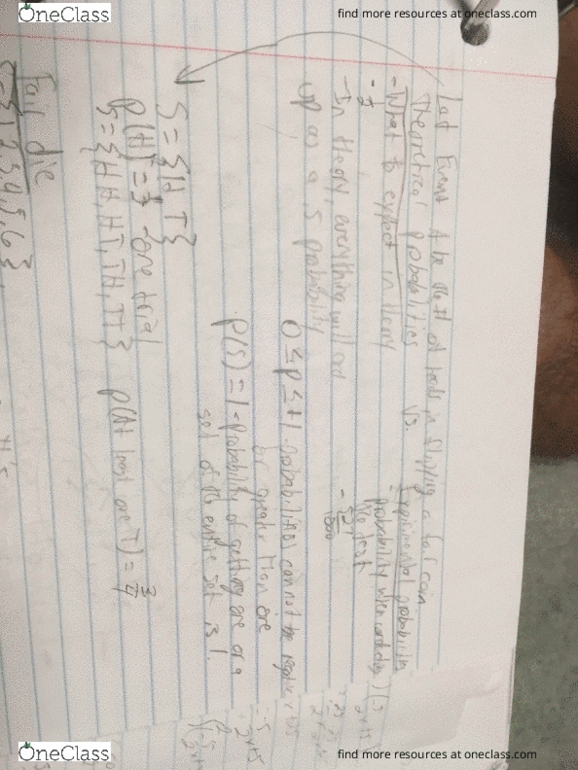 OneClass
find more resources at oneclass.com
Let Event A be the # of heads in flipping a fair coin
Theoretical probabilities vs. Experimental probability
- What to expect in theory
probability when conducting
the test
- 1/2
- 527/1000
- In theory, everything will end
up as a .5 probability
0 ≤ p ≤ +1 · probabilities cannot be negative
or greater than one
P(S) = 1 · probability of getting one or a
set of the entire set is 1.
S = {H, T}
P(H) = 1/2 - one trial
S = {HH, HT, TH, TT} P(At least one T) = 3/4
Fair die
1,2,3,4,5,6}
OneClass
find more resources at oneclass.com